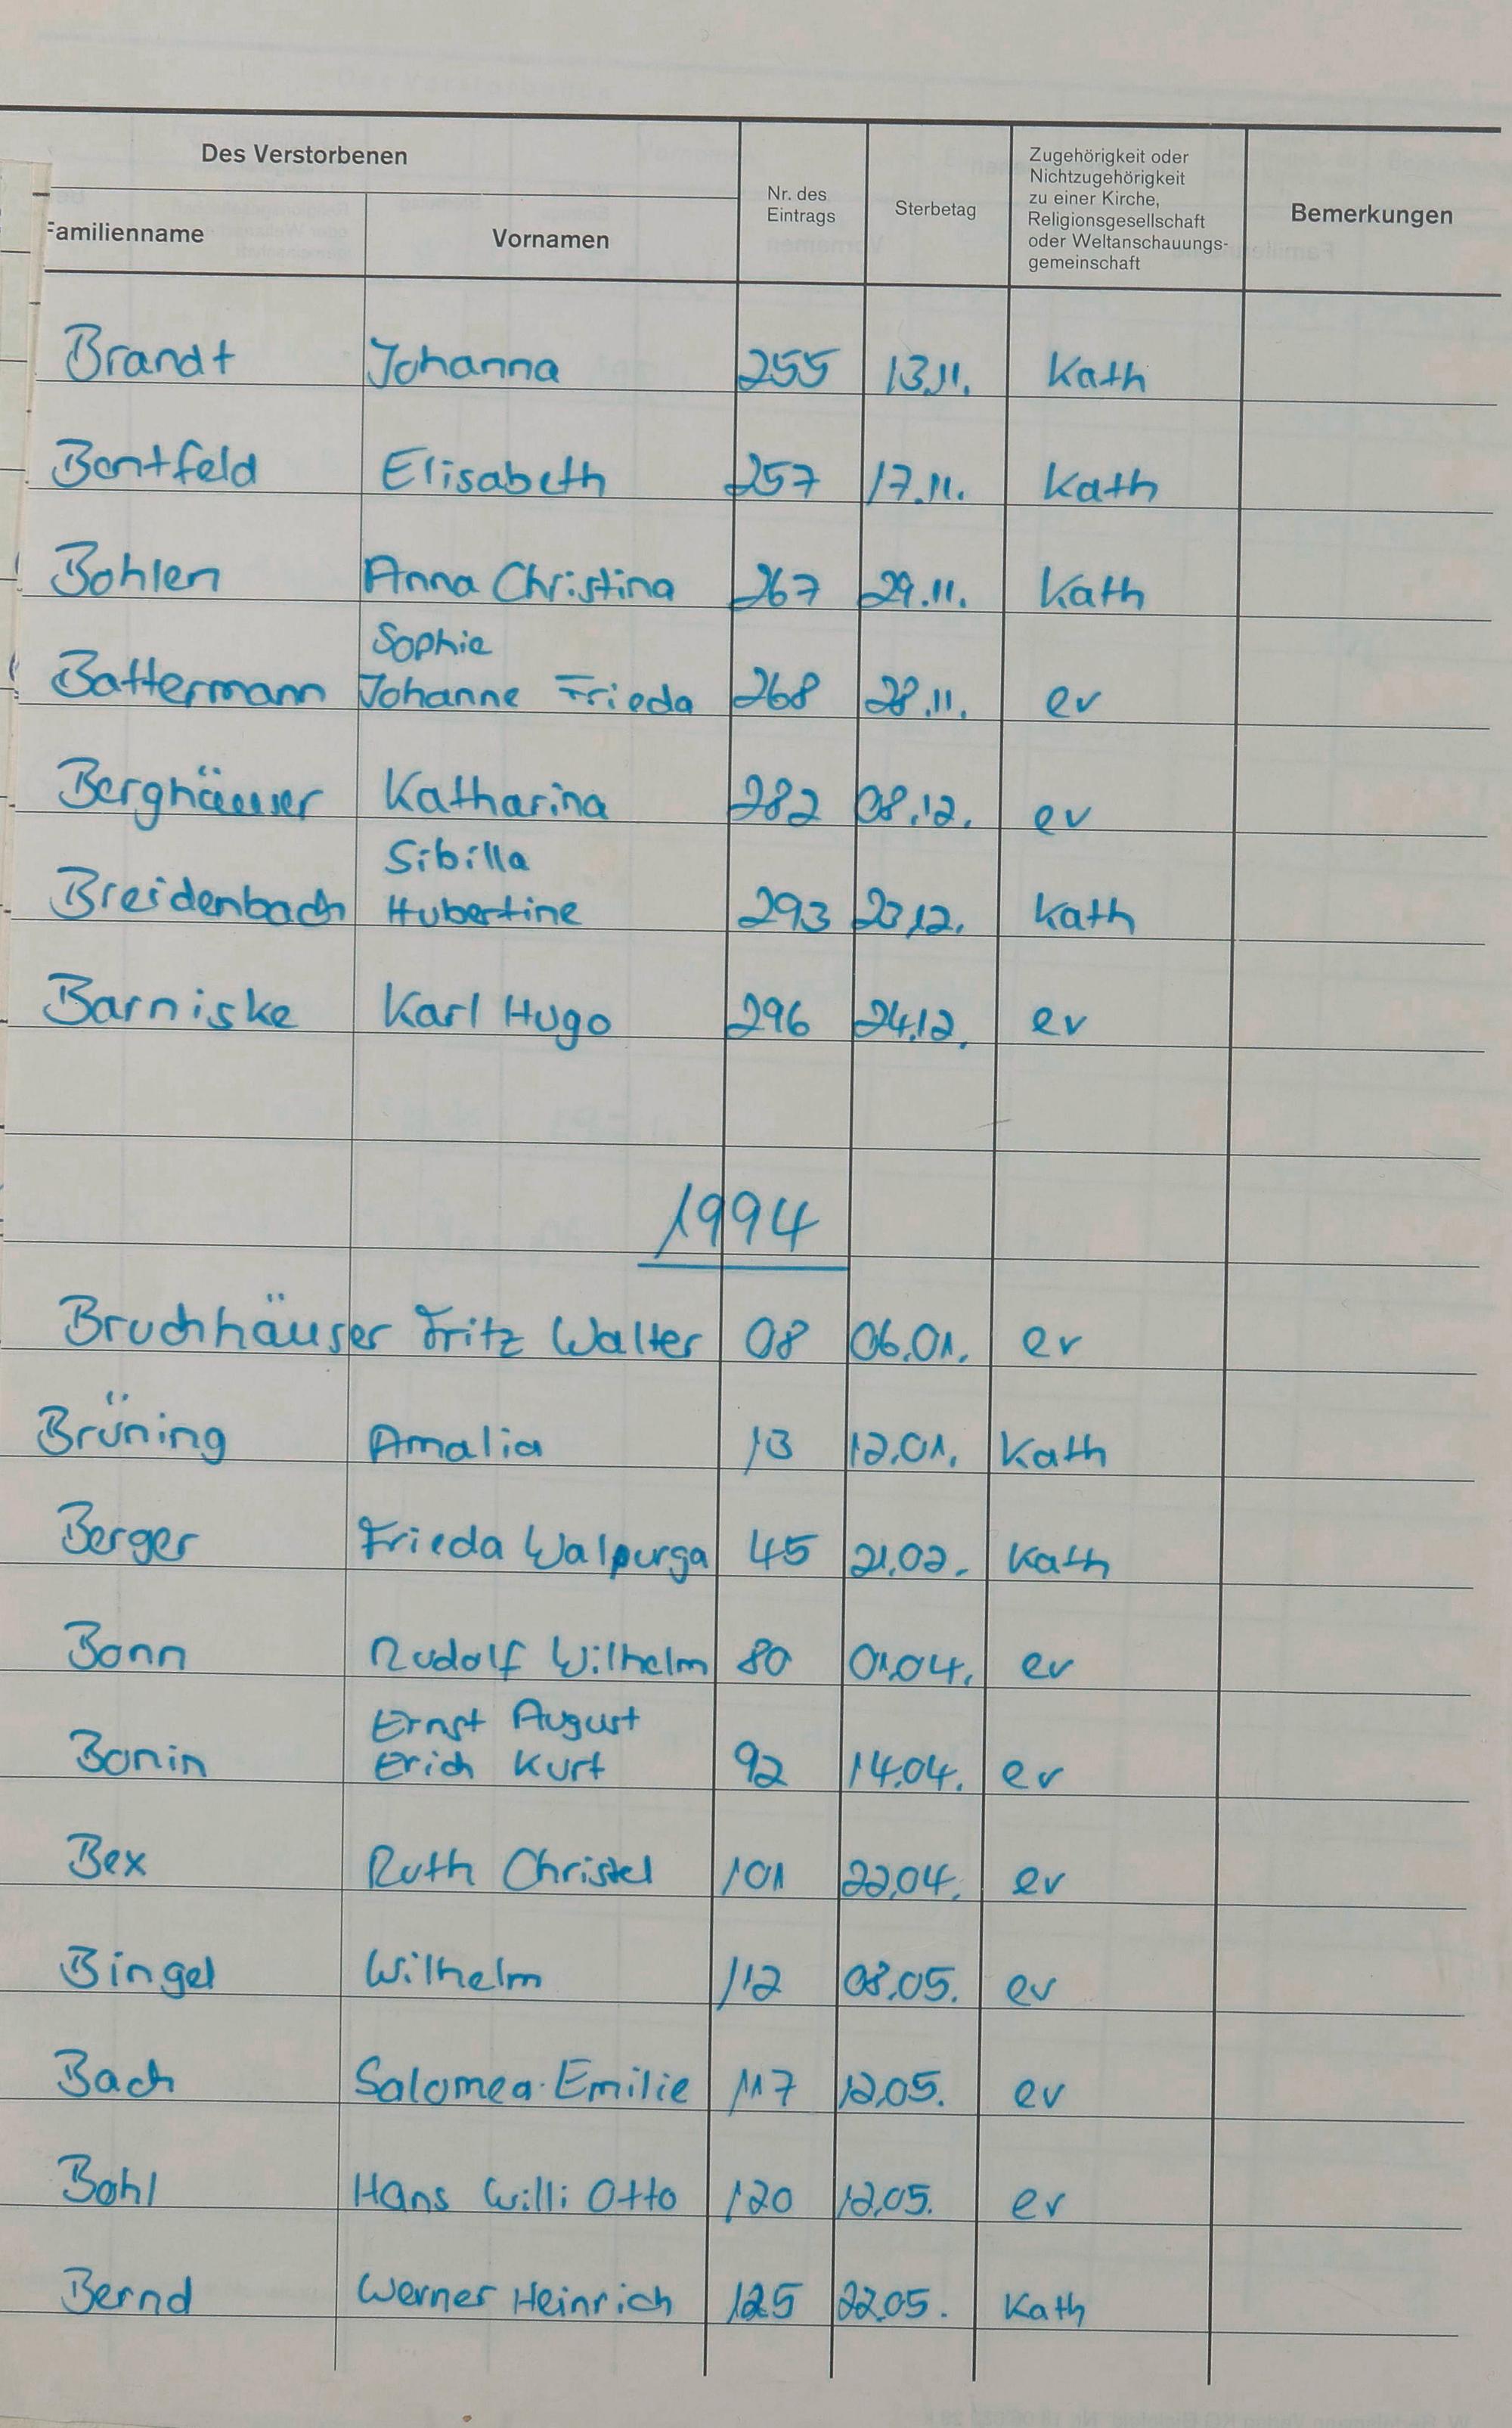 Des Verstorbenen
Familienname
Vornamen
Nr. des
Eintrags
Sterbetag
Zugehörigkeit oder
Nichtzugehörigkeit
zu einer Kirche,
Religionsgesellschaft
oder Weltanschauungs-
gemeinschaft
Bemerkungen
Brandt Johanna 255 13.11. Kath
Bontfeld Elisabeth 257 17.11. Kath
Bohlen Anna Christina 267 29.11. Kath
Sophie
Battermann Johanne Frieda 268 28.11. ev
Berghäuser Katharina 282 08.12. ev
Sibilla
Breidenbach Hubertine 293 23.12. Kath
Barniske Karl Hugo 296 24.12. ev
1994
Bruchhäuser Fritz Walter 08 06.01. ev
Brüning Amalia 13 12.01. Kath
Berger Frieda Walpurga 45 21.02. Kath
Bonn Rudolf Wilhelm 80 01.04. ev
Ernst August
Bonin Erich Kurt 92 14.04. ev
Bex Ruth Christel 101 22.04. ev
Bingel Wilhelm 112 08.05. ev
Bach Salomea Emilie 117 12.05. ev
Bohl Hans Willi Otto 120 12.05. ev
Bernd Werner Heinrich 125 22.05. Kath